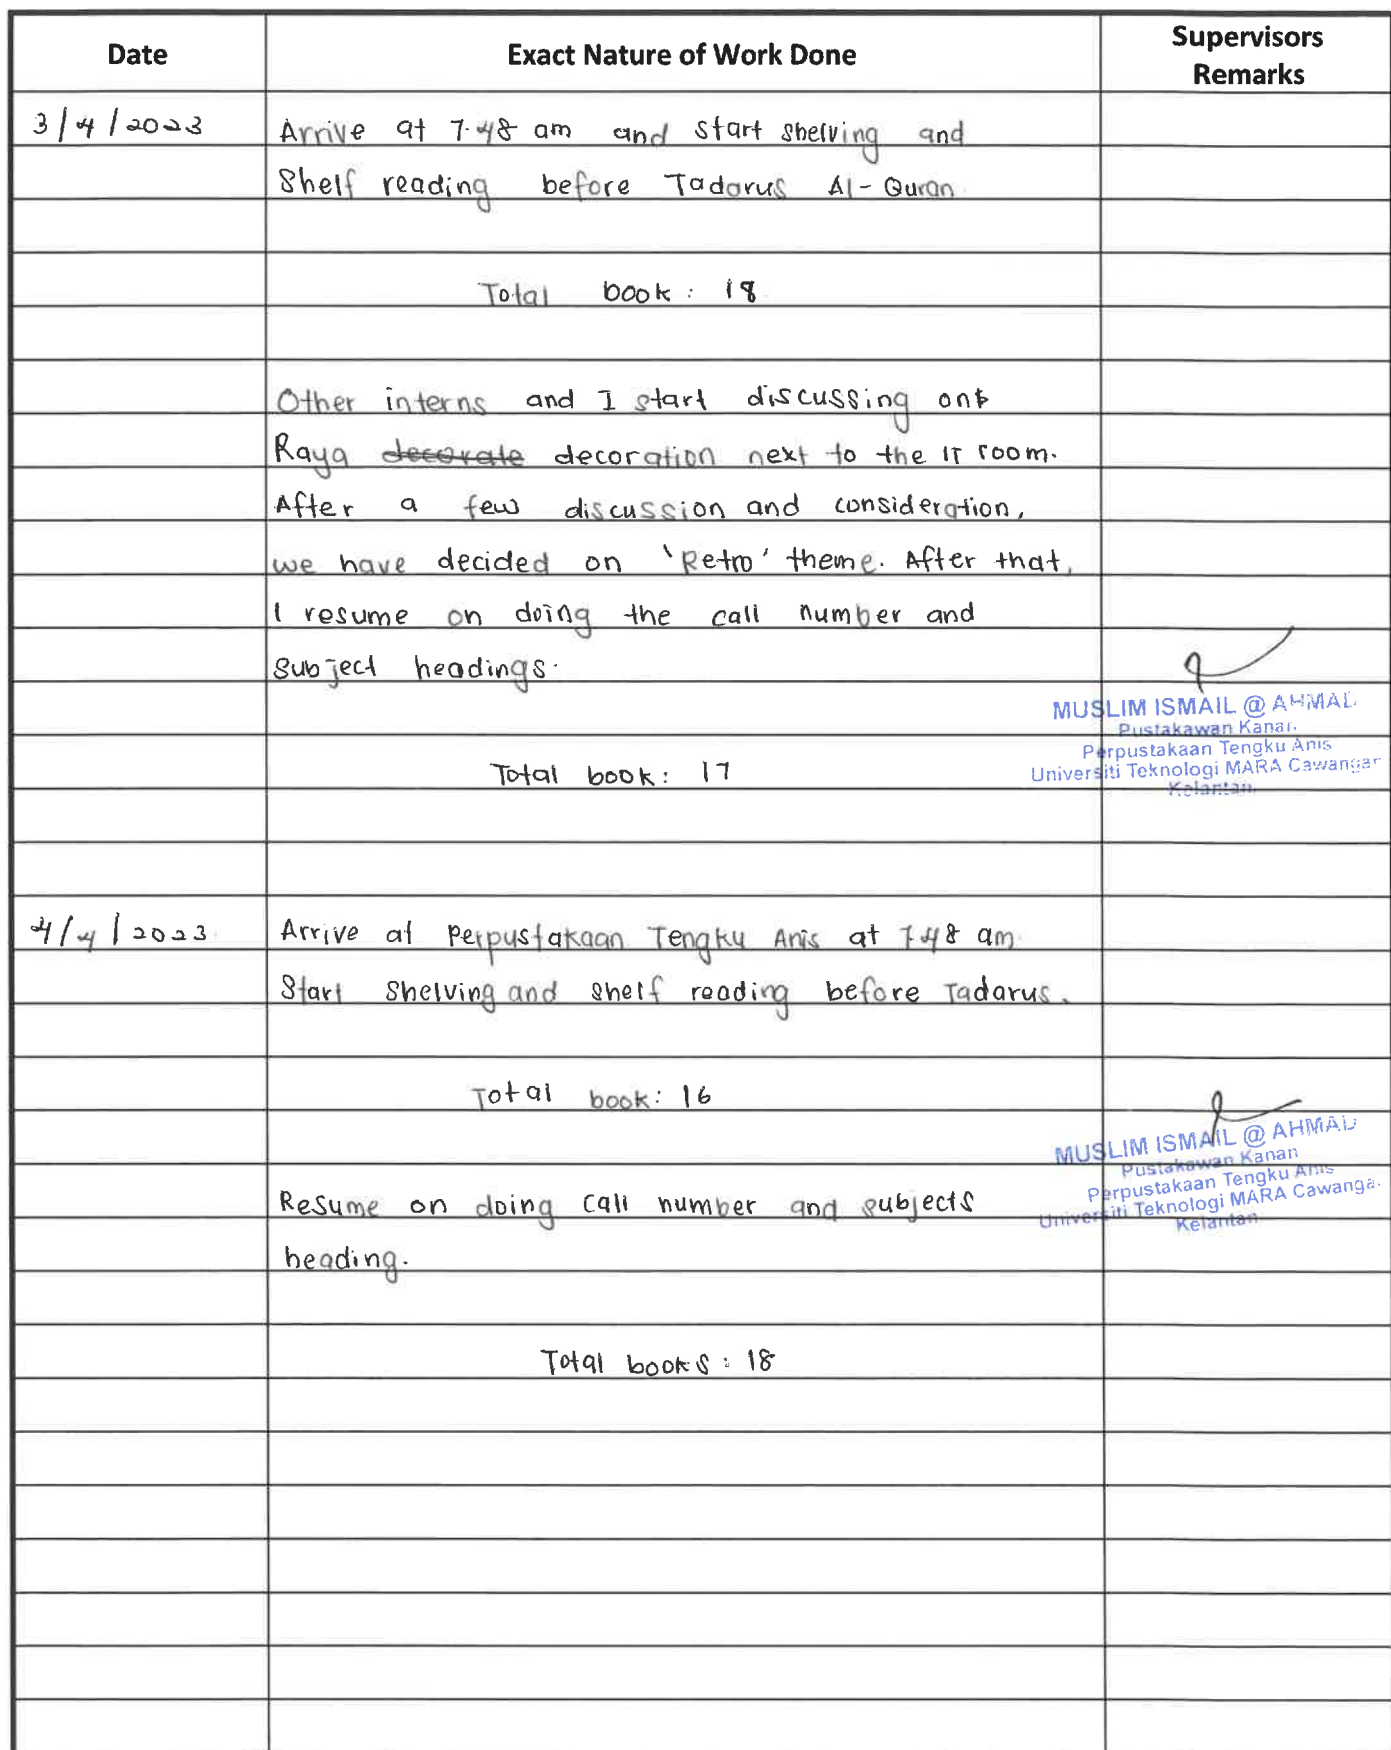 Date Exact Nature of Work Done Supervisors Remarks
3/4/2023 Arrive at 7.48 am and start shelving and
Shelf reading before Tadarus Al-Quran
Total book: 18
Other interns and I start discussing on
Raya decorate decoration next to the IT room.
After a few discussion and consideration,
we have decided on 'Retro' theme. After that,
I resume on doing the call number and
subject headings.
MUSLIM ISMAIL @ AHMAD
Pustakawan Kanan
Perpustakaan Tengku Anis
Universiti Teknologi MARA Cawangan
Kelantan
Total book: 17
4/4/2023 Arrive at Perpustakaan Tengku Anis at 7.48 am.
Start Shelving and shelf reading before Tadarus.
Total book: 16
MUSLIM ISMAIL @ AHMAD
Pustakawan Kanan
Perpustakaan Tengku Anis
Universiti Teknologi MARA Cawanga
Kelantan
Resume on doing call number and subjects
heading.
Total books: 18